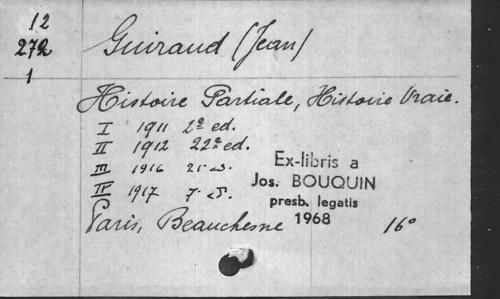 12
272
1
Guiraud (Jean)
Histoire Partiale, Histoire Vraie.
I 1911 2e ed.
II 1912 22e ed.
III 1916 21e
IV 1917 7e
Ex-libris a
Jos. BOUQUIN
presb. legatis
1968
Paris, Beauchesne 16°